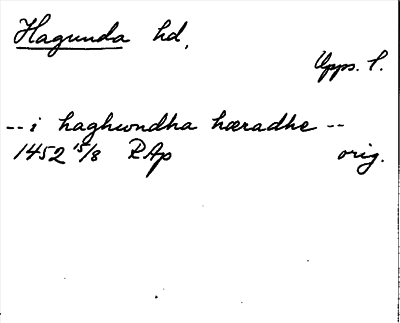 Hagunda hd,
Upps. l.
-- i haghwndha hæradhe --
1452 15/8 RAp orig.